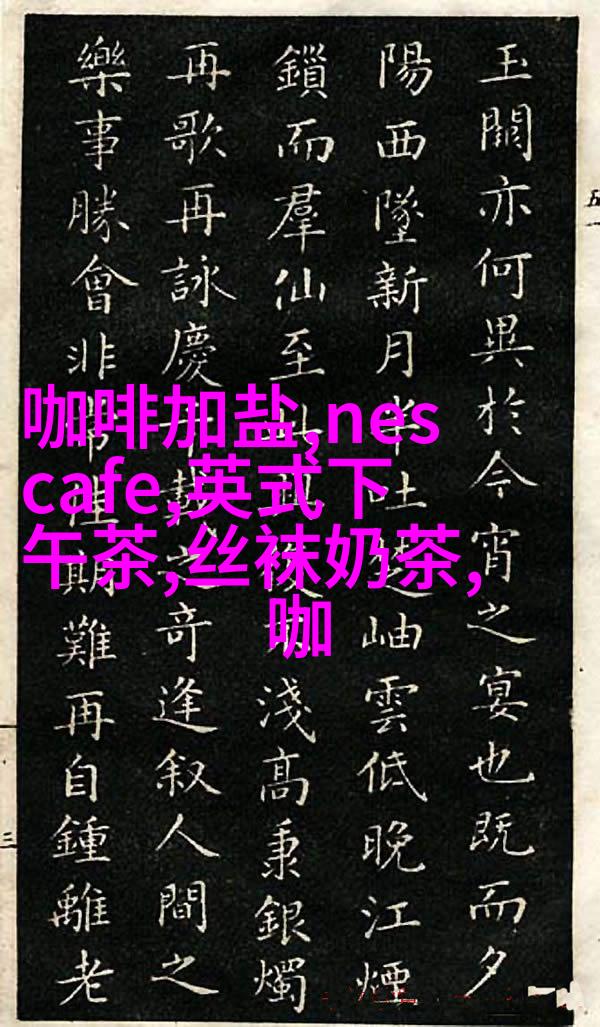 玉關亦何異於今宵之宴也既而夕
陽西墜新月半吐楚岫雲低晚江煙
鎖而羣仙至淺高秉銀燭
再歌再詠慶千載之奇逢叙人間之
樂事勝會非常佳期難再自鍾離老
咖啡加盐,nes
cafe,英式下
午茶,丝袜奶茶,
咖
五一
三